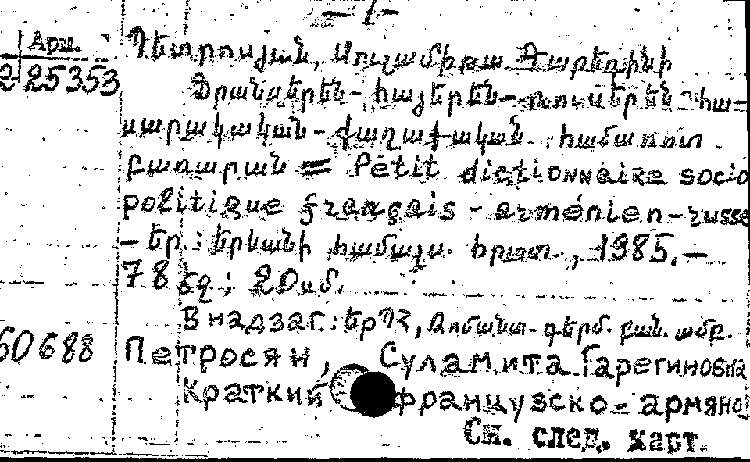 — 1 —
Арм.
2 25353
Պետրոսյան, Սուլամիթա Գարեգինի
Ֆրանսերեն - հայերեն - ռուսերեն հա=
սարակական - քաղաքական համառոտ
բառարան = Petit dictionnaire socio
politique français - arménien - russe
- Եր.: Երևանի համալս. հրատ., 1985. —
78 էջ; 20 սմ.
В надзаг.: ԵրՊՀ, Ռոմանա-գերմ. բան. ամբ.
60688 Петросян, Суламита Гарегиновна
Краткий французско-армяно
См. след. карт.